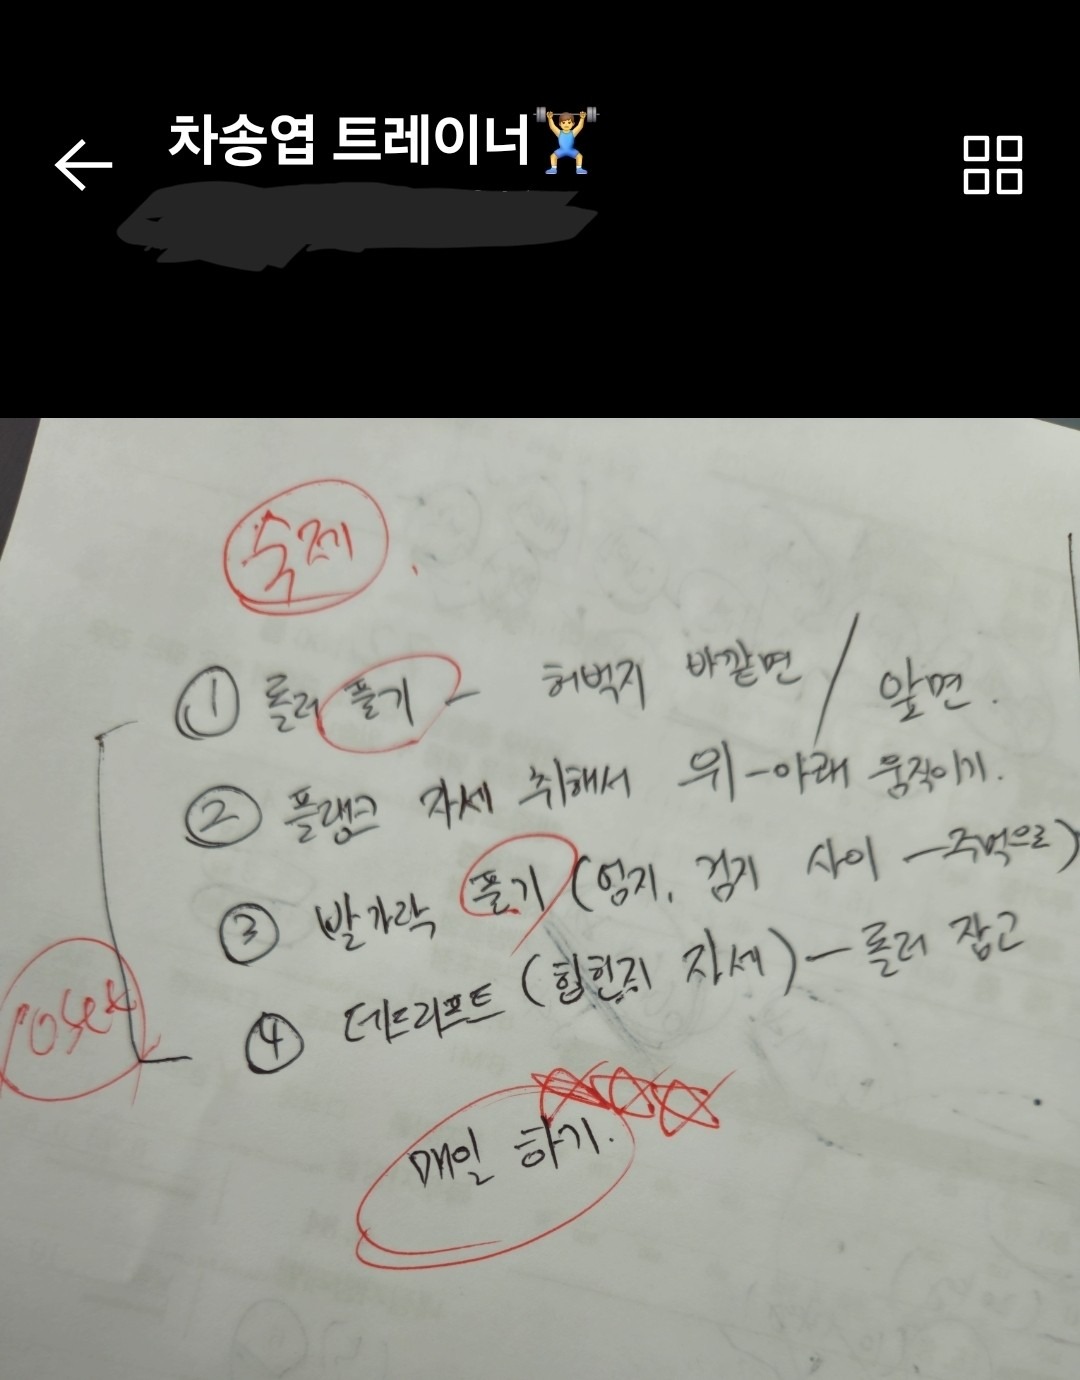 차송엽 트레이너
숙제
① 롤러 풀기 - 허벅지 바깥면 / 앞면.
② 플랭크 자세 취해서 위-아래 움직이기.
③ 발가락 풀기 (엄지, 검지 사이 - 주먹으로)
④ 데드리프트 (힙힌지 자세) - 롤러 잡고
10set
매일 하기.